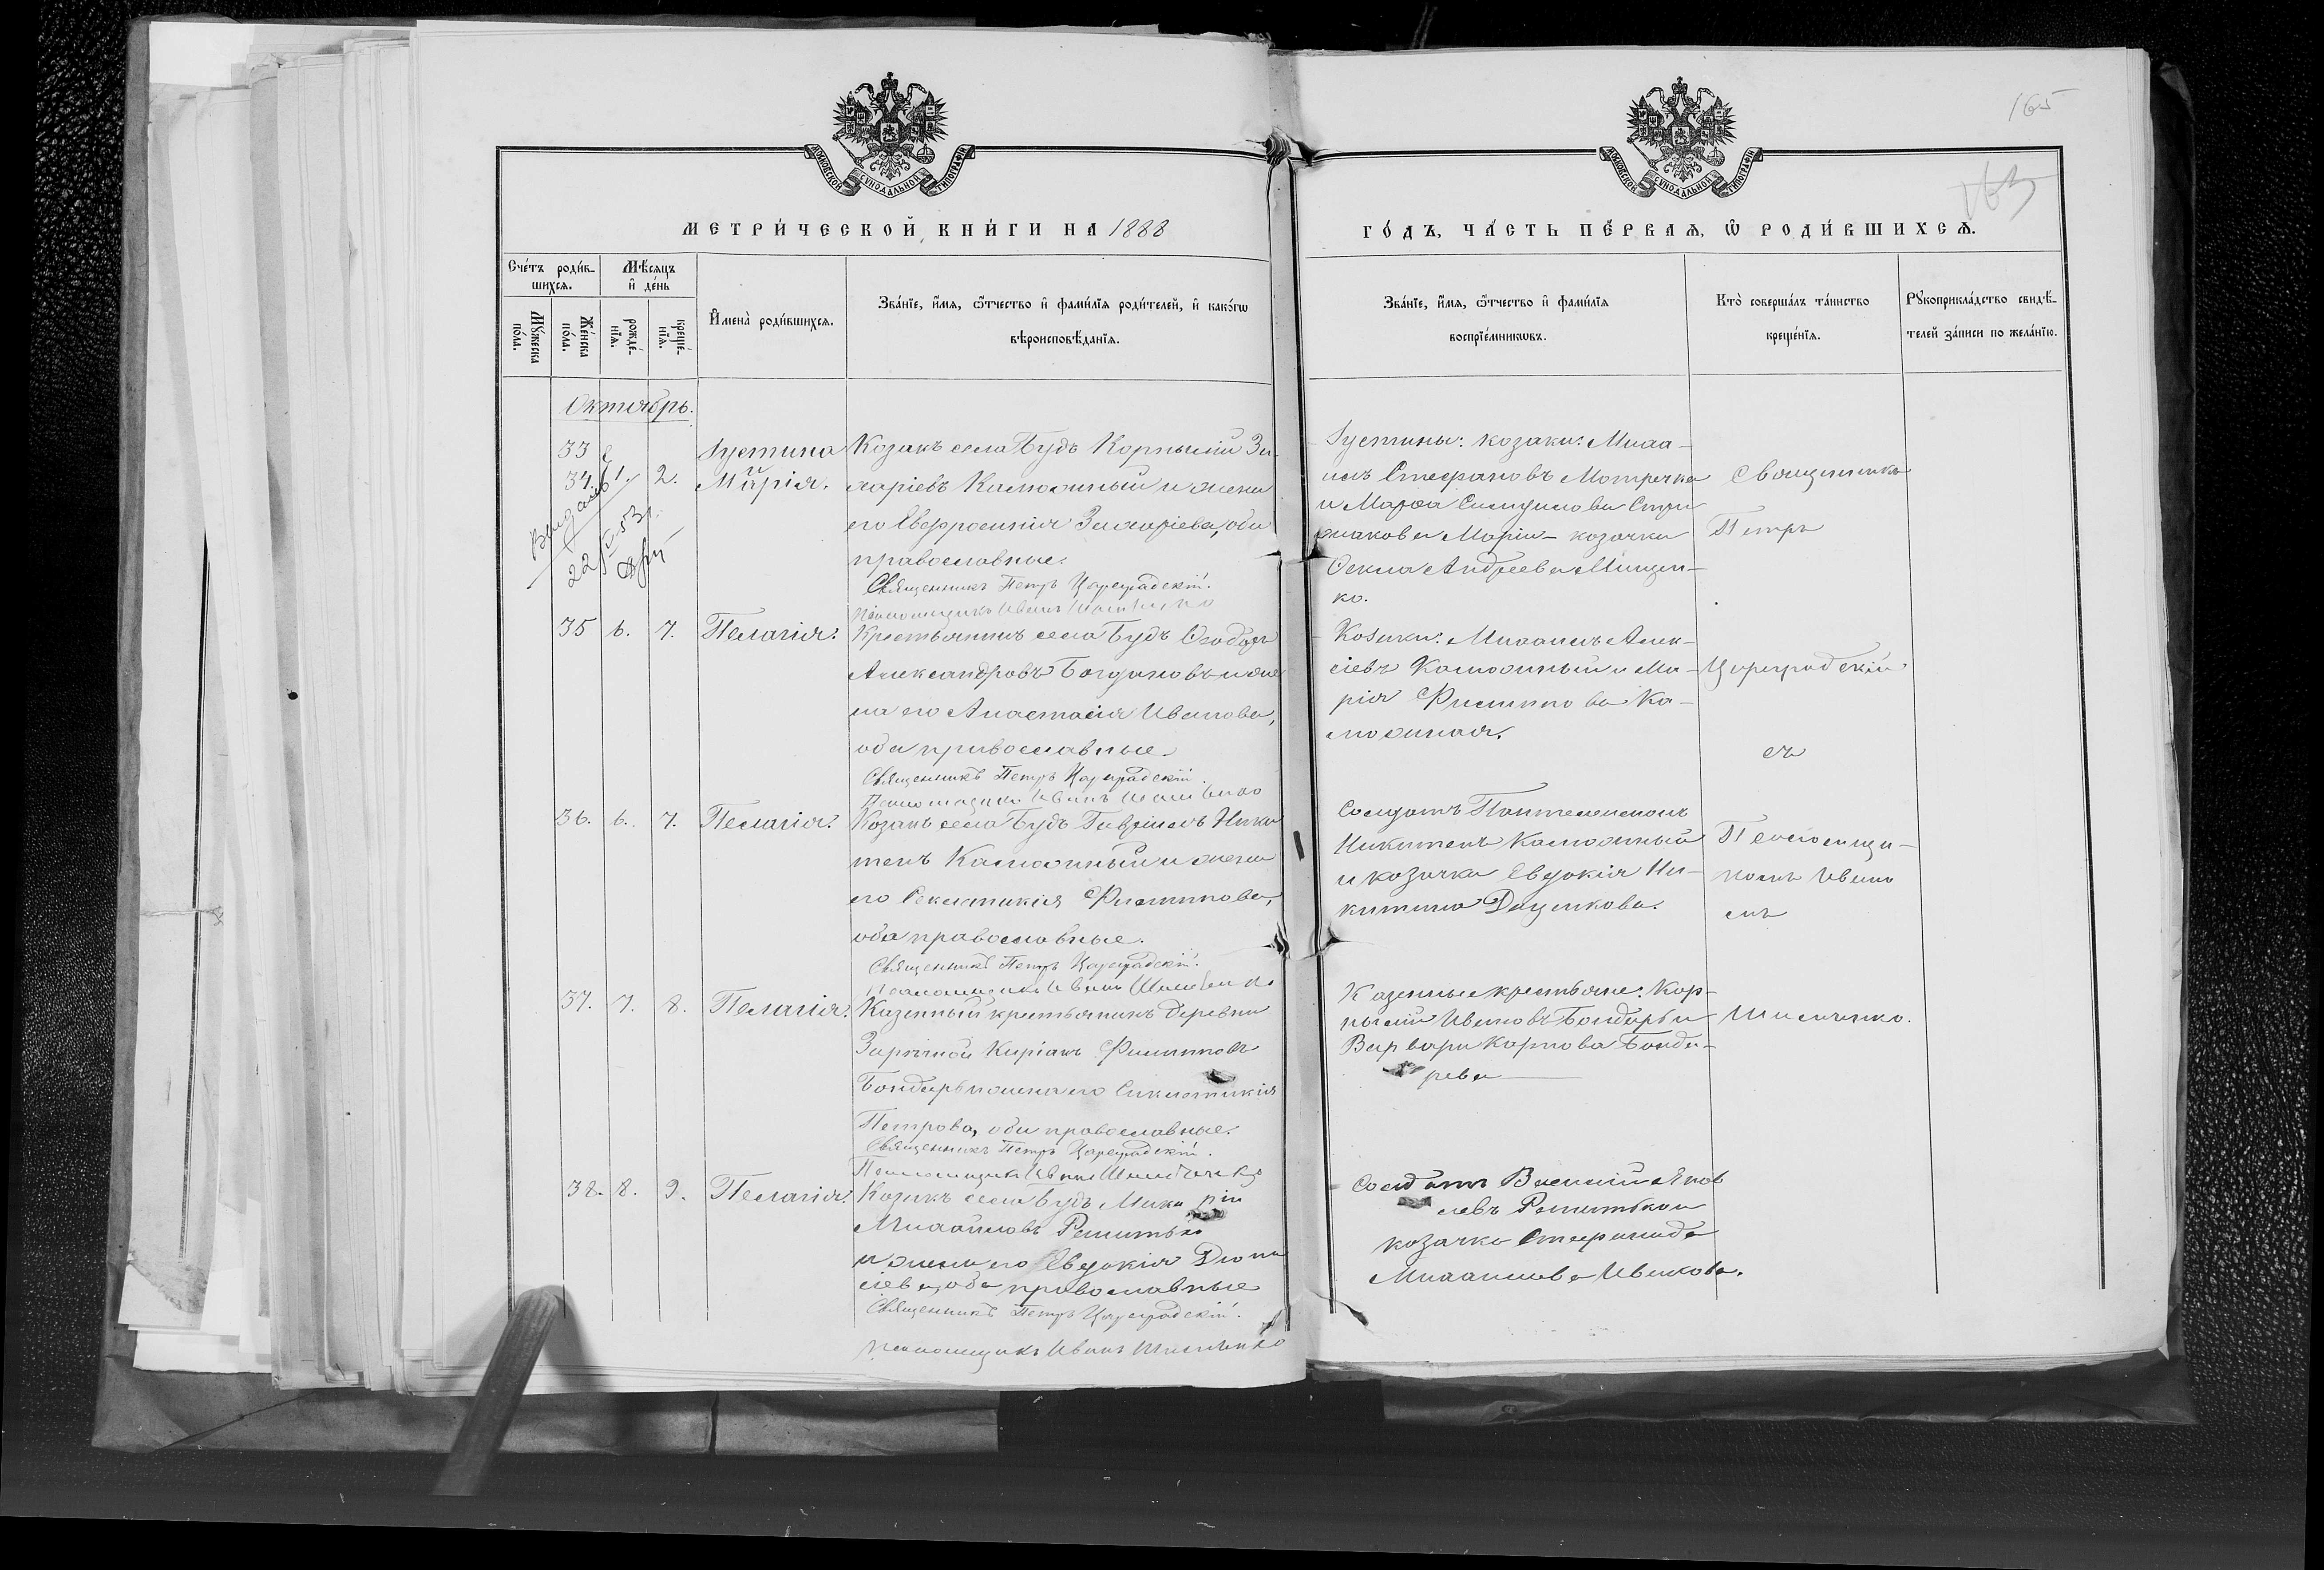 165
163
МОСКОВСКОЙ СѴНОДАЛЬНОЙ ТИПОГРАФІИ
МОСКОВСКОЙ СѴНОДАЛЬНОЙ ТИПОГРАФІИ
МЕТРИ́ЧЕСКОЙ КНИ́ГИ НА 1888
ГО́ДЪ, ЧА́СТЬ ПЕ́РВАѦ, Ѡ҆ РОДИ́ВШИХСѦ.
Сче́тъ роди́в-
шихсѧ.
Мѣ́сѧцъ
и҆ де́нь
Мꙋ́жеска
по́ла.
Же́нска
по́ла.
рожде́-
нїѧ.
креще́-
нїѧ.
И҆мена̀ роди́вшихсѧ.
Зва́нїе, и҆́мѧ, ѻ҆́тчество и҆ фами́лїѧ роди́телей, и҆ како́гѡ
вѣроисповѣ́данїѧ.
Зва́нїе, и҆́мѧ, ѻ҆́тчество и҆ фами́лїѧ
воспрїе́мникѡвъ.
Кто̀ соверша́лъ та́инство
креще́нїѧ.
Рꙋкоприкла́дство свидѣ́-
телей за́писи по жела́нїю.
Октябрь.
33
34. 1. 2.
Іустина
и
Марія.
Козакъ села Будъ Корнилій За-
харіевъ Калюжный и жена
его Евфросинія Захаріева, оба
православные.
Священникъ Петръ Цареградскій.
Псаломщикъ Иванъ
Іустины: козаки: Миха-
илъ Стефановъ Мотречко
и Марѳа
Маріи - козачка
Ѳекла Андреева Мищен-
ко.
Священникъ
Петръ
35 6. 7. Пелагія.
Крестьянинъ села Будъ Ѳеодоръ
Александровъ Богдановъ и же
на его Анастасія Иванова,
оба православные.
Священникъ Петръ Цареградскій.
Псаломщикъ Иванъ
Козаки: Михаилъ Алек-
сіевъ Калюжный и Ма-
рія Филиппова Ка-
люжная.
Цареградскій
съ
36. 6. 7. Пелагія.
Козакъ села Будъ Гавріилъ Ники
тенъ Калюжный и жена
его Секлитикія Филиппова,
оба православные.
Священникъ Петръ Цареградскій.
Псаломщикъ Иванъ
Солдатъ Пантелеимонъ
Никитенъ Калюжный
и козачка Евдокія Ни-
китина Даценкова.
Псаломщи-
комъ Ивано
мъ
37. 7. 8. Пелагія.
Казенный крестьянинъ деревни
Заречной Киріакъ Филипповъ
Бондарь и жена его Синклитикія
Петрова, оба православные.
Священникъ Петръ Цареградскій.
Псаломщикъ Иванъ
Казенные крестьяне: Кор-
нилій Ивановъ Бондарь и
Варвара Карпова Бонда-
рева
38. 8. 9. Пелагія.
Козакъ села Будъ Макарій
Михаиловъ Решитько
и жена его Евдокія Діони
сіева, оба православные
Священникъ Петръ Цареградскій.
Псаломщикъ Иванъ
Солдатъ Василій Яков
левъ Решитько и
козачка Стефанида
Михаилова Ивахова.